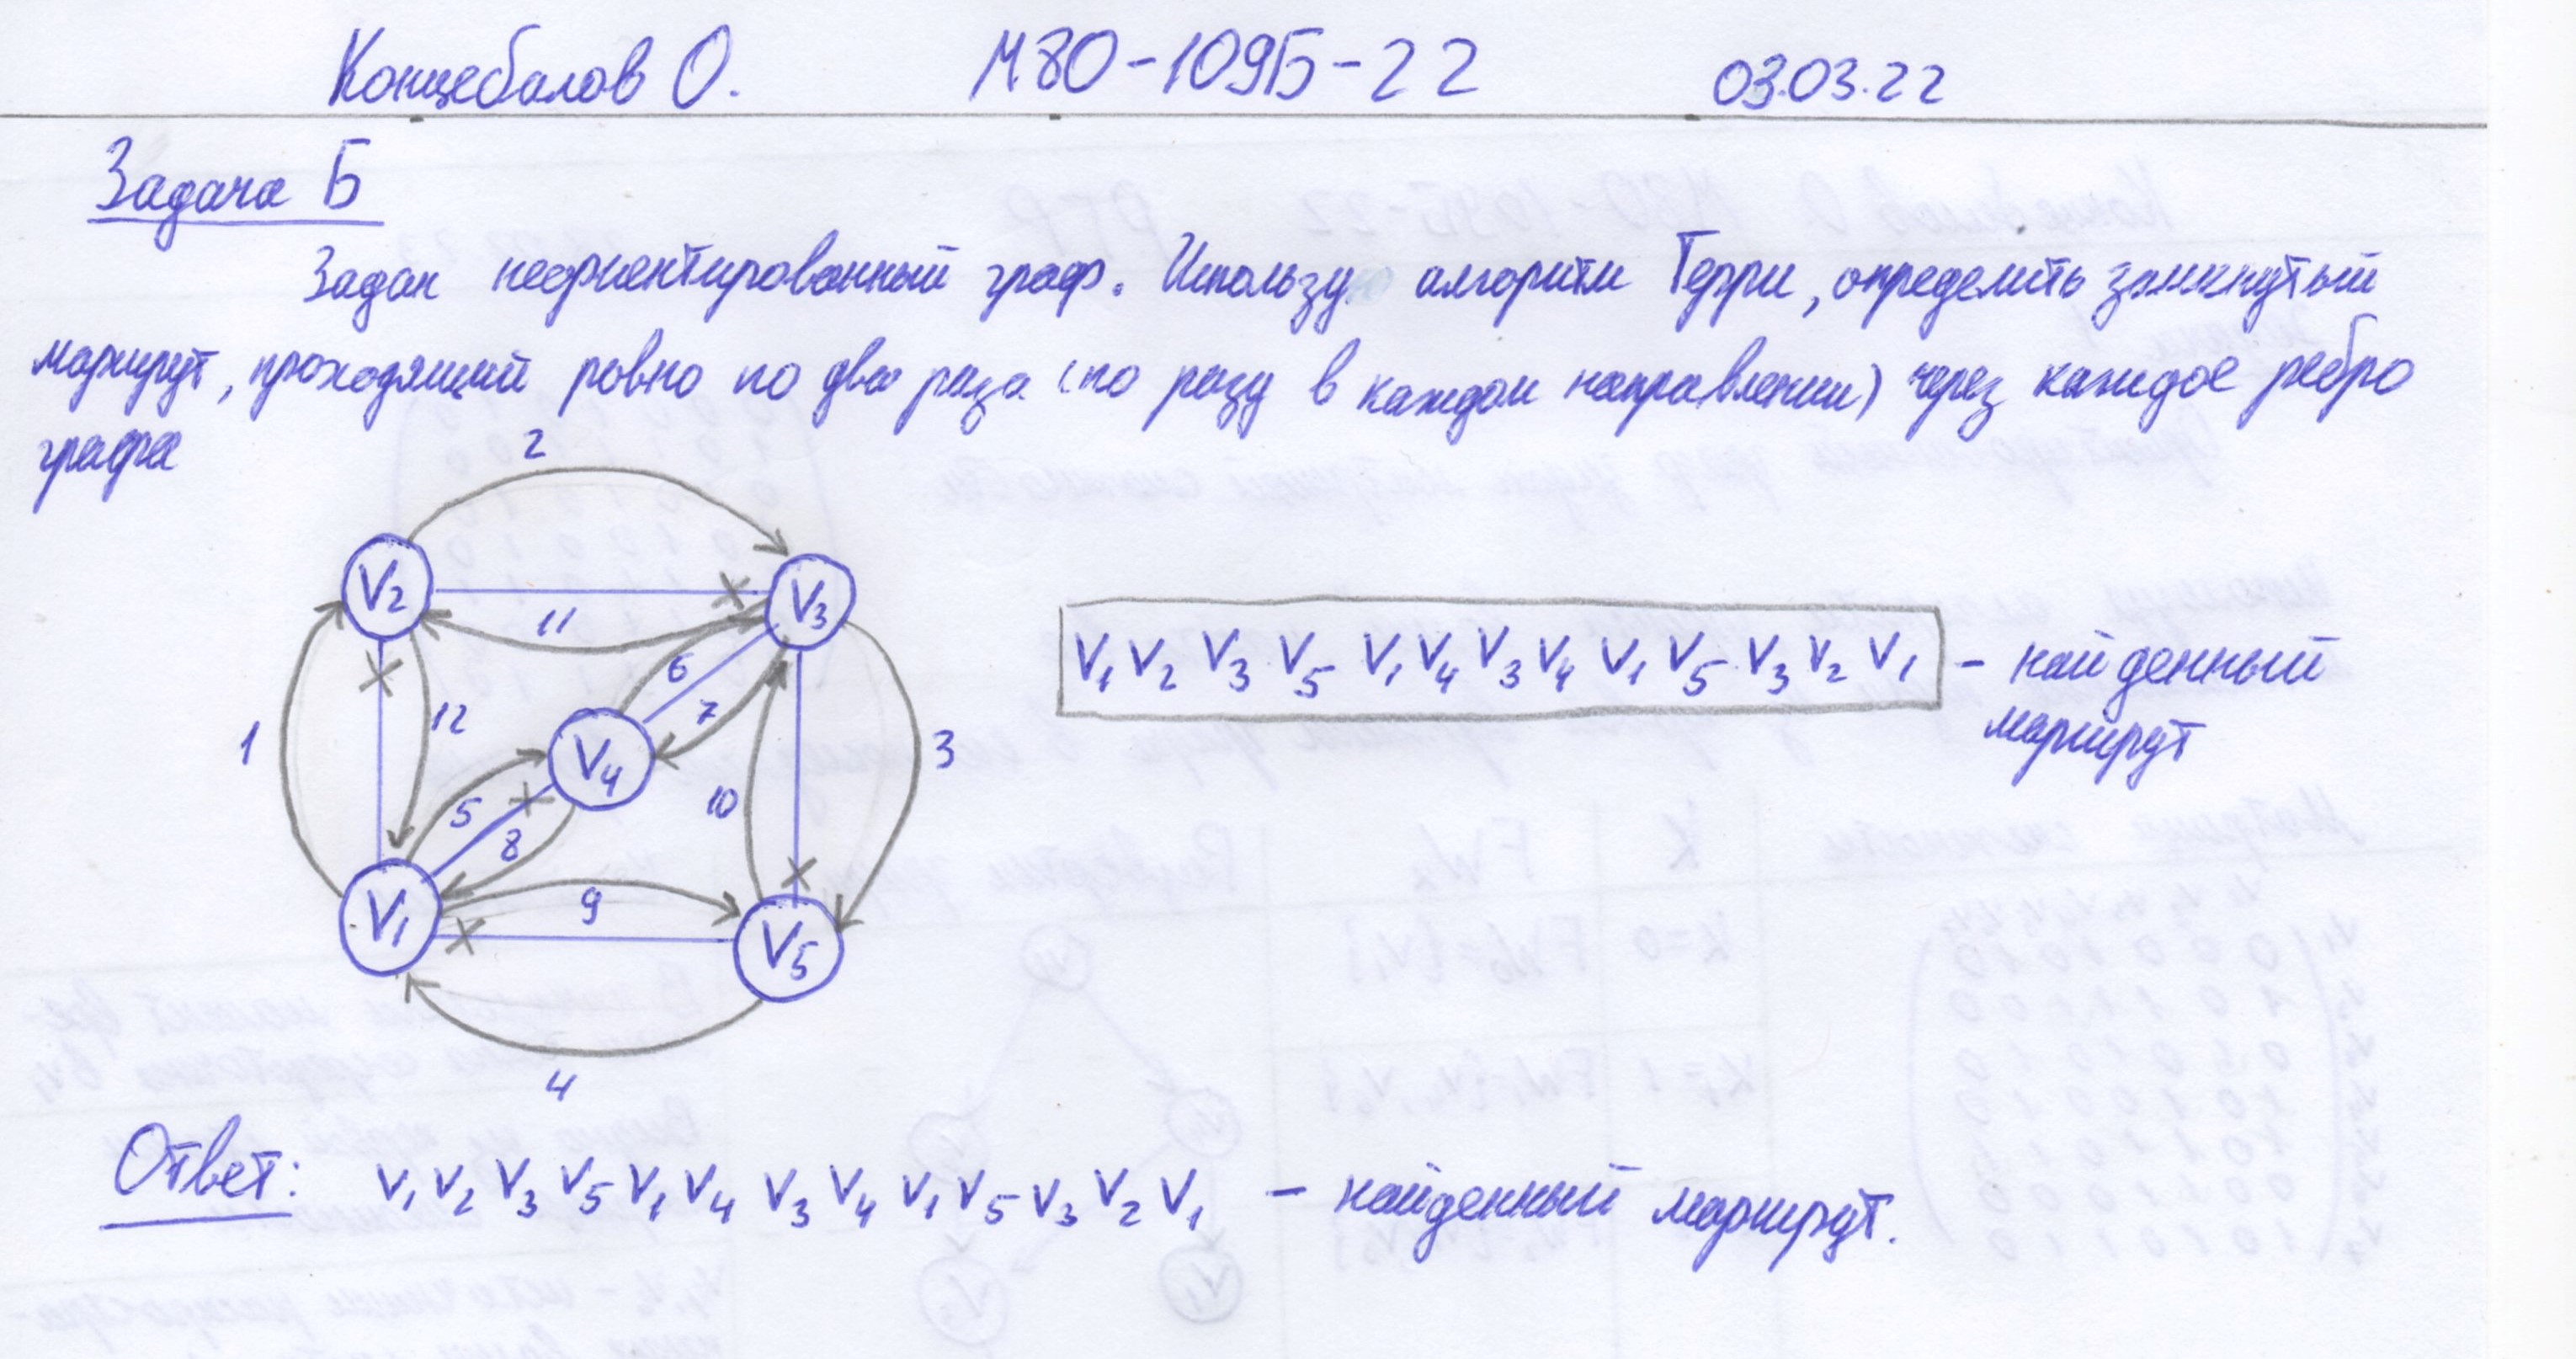 Концебалов О. М80-109Б-22 03.03.22
Задача Б
Задан неориентированный граф. Использу алгоритм Терри, определить замкнутый
маршрут, проходящий ровно по два раза (по разу в каждом направлении) через каждое ребро
графа
2
V2
V3
11
6
7
12
1
V4
3
10
5
8
9
V1
V5
4
V1 V2 V3 V5 V1 V4 V3 V4 V1 V5 V3 V2 V1 – найденный
маршрут
Ответ: V1 V2 V3 V5 V1 V4 V3 V4 V1 V5 V3 V2 V1 – найденный маршрут.